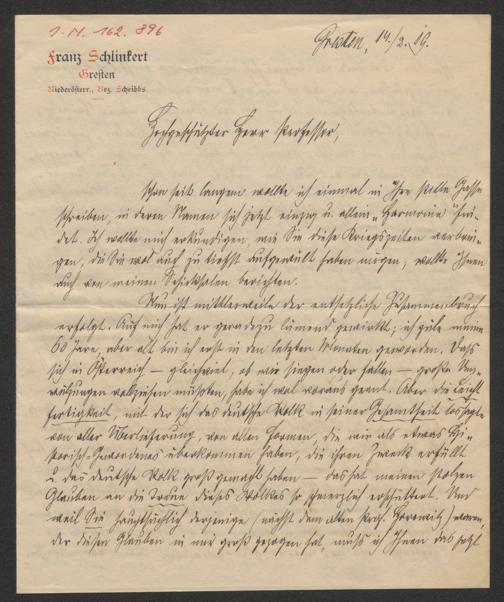 I. N. 162.896
Franz Schlinkert
Gresten
Niederösterr., Bez. Scheibbs
Gresten, 14./2. 19.
Hochgeschätzter Herr Professor,
schon seit langem wollte ich einmal in Ihre stille Gasse
schreiben, in deren Namen sich jetzt einzig u. allein „Harmonie“ fin-
det. Ich wollte mich erkundigen, wie Sie diese Kriegszeiten verbrin-
gen, die Sie wol auch zu tiefst aufgewült haben mögen; wollte Ihnen
auch von meinen Schicksalen berichten.
Nun ist mittlerweile der entsetzliche Zusammenbruch
erfolgt. Auf mich hat er geradezu lämend gewirkt; ich zäle meine
60 Jare, aber alt bin ich erst in den letzten Monaten geworden. Dass
sich in Österreich – gleichviel, ob wir siegen oder fallen – große Um-
wälzungen vollziehen müssten, habe ich wol voraus geant. Aber die Leicht-
fertigkeit, mit der sich das deutsche Volk in seiner Gesamtheit lossagte
von aller Überlieferung, von allen Formen, die wir als etwas Hi-
storisch-Gewordenes überkommen haben, die ihren Zweck erfüllt
u. das deutsche Volk groß gemacht haben – das hat meinen stolzen
Glauben an die Treue dieses Volkes so schmerzlich erschüttert. Und
weil Sie hauptsächlich derjenige (nächst dem alten Prof. Horawitz) waren,
der diesen Glauben in mir groß gezogen hat, muss ich Ihnen das jetzt